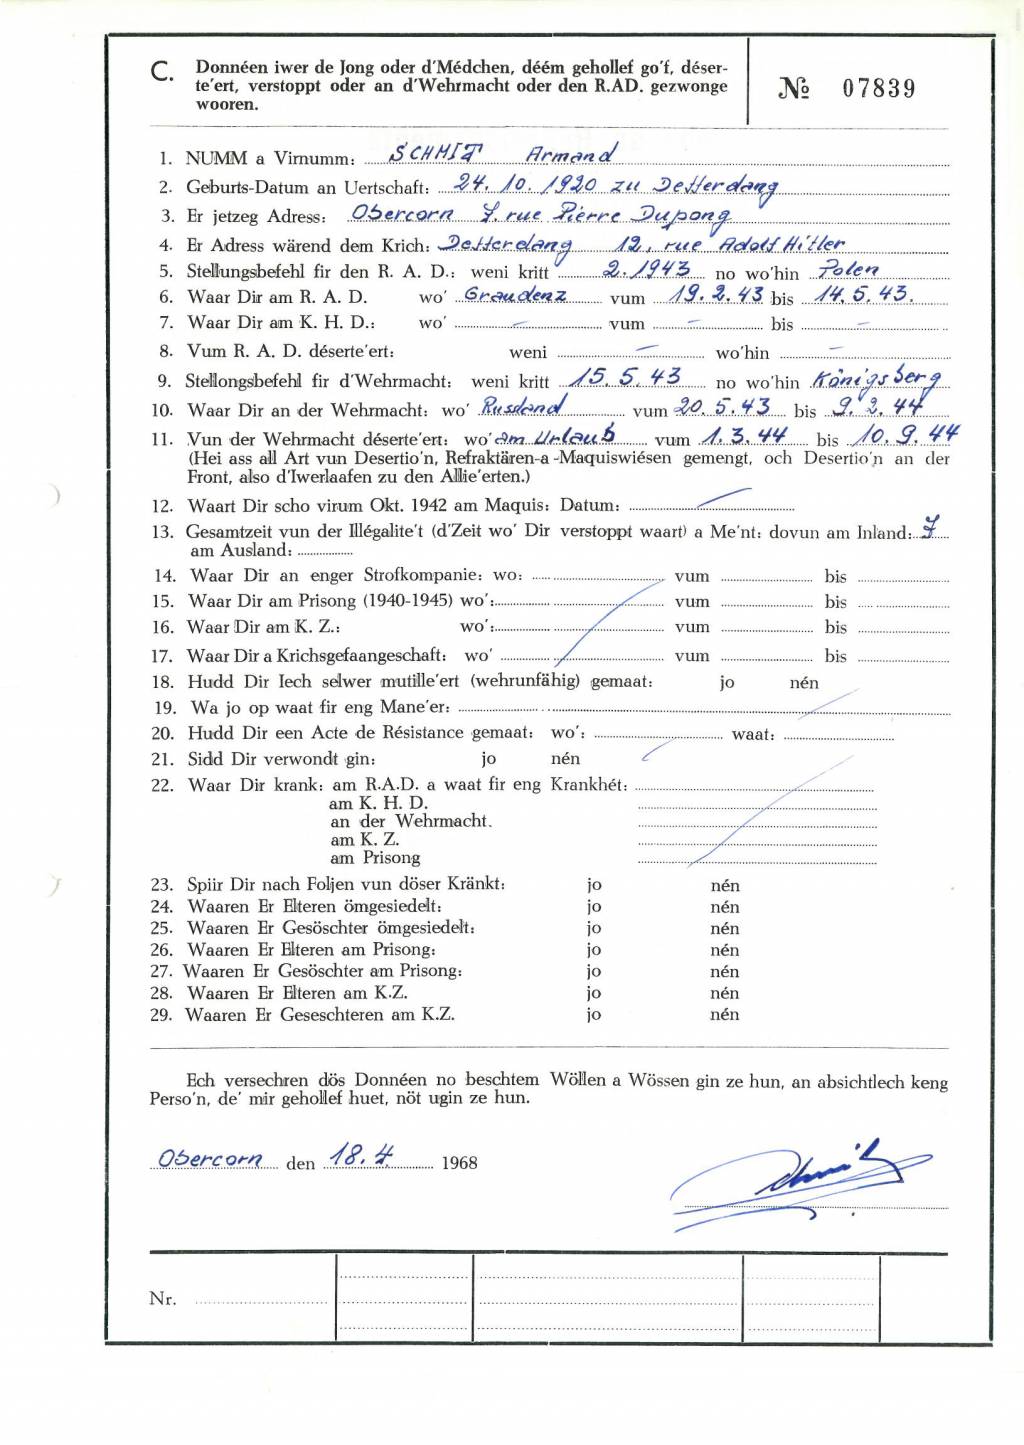 C. Donnéen iwer de Jong oder d'Médchen, déém gehollef go'f, déser-
te'ert, verstoppt oder an d'Wehrmacht oder den R.AD. gezwonge
wooren.
№ 07839
1. NUMM a Virnumm: SCHMIT Armand
2. Geburts-Datum an Uertschaft: 24. 10. 1920 zu Defferdang
3. Er jetzeg Adress: Obercorn 7. rue Pierre Dupong
4. Er Adress wärend dem Krich: Defferdang 12, rue Adolf Hitler
5. Stellungsbefehl fir den R. A. D.: weni kritt 2. 1943 no wo'hin Polen
6. Waar Dir am R. A. D. wo' Graudenz vum 19. 2. 43 bis 14. 5. 43.
7. Waar Dir am K. H. D.: wo' — vum — bis —
8. Vum R. A. D. déserte'ert: weni — wo'hin —
9. Stellongsbefehl fir d'Wehrmacht: weni kritt 15. 5. 43 no wo'hin Königsberg
10. Waar Dir an der Wehrmacht: wo' Russland vum 20. 5. 43 bis 9. 2. 44
11. Vun der Wehrmacht déserte'ert: wo' am Urlaub vum 1. 3. 44 bis 10. 9. 44
(Hei ass all Art vun Desertio'n, Refraktären-a-Maquiswiésen gemengt, och Desertio'n an der
Front, also d'Iwerlaafen zu den Allie'erten.)
12. Waart Dir scho virum Okt. 1942 am Maquis: Datum: —
13. Gesamtzeit vun der Illégalite't (d'Zeit wo' Dir verstoppt waart) a Me'nt: dovun am Inland: 7
am Ausland:
14. Waar Dir an enger Strofkompanie: wo: vum bis
15. Waar Dir am Prisong (1940-1945) wo': vum bis
16. Waar Dir am K. Z.: wo': vum bis
17. Waar Dir a Krichsgefaangeschaft: wo' vum bis
18. Hudd Dir Iech selwer mutille'ert (wehrunfähig) gemaat: jo nén
19. Wa jo op waat fir eng Mane'er:
20. Hudd Dir een Acte de Résistance gemaat: wo': waat:
21. Sidd Dir verwondt gin: jo nén
22. Waar Dir krank: am R.A.D. a waat fir eng Krankhét:
am K. H. D.
an der Wehrmacht.
am K. Z.
am Prisong
23. Spiir Dir nach Foljen vun döser Kränkt: jo nén
24. Waaren Er Elteren ömgesiedelt: jo nén
25. Waaren Er Gesöschter ömgesiedelt: jo nén
26. Waaren Er Elteren am Prisong: jo nén
27. Waaren Er Gesöschter am Prisong: jo nén
28. Waaren Er Elteren am K.Z. jo nén
29. Waaren Er Geseschteren am K.Z. jo nén
Ech versechren dös Donnéen no beschtem Wöllen a Wössen gin ze hun, an absichtlech keng
Perso'n, de' mir gehollef huet, nöt ugin ze hun.
Obercorn den 18. 4. 1968
Schmit
Nr.